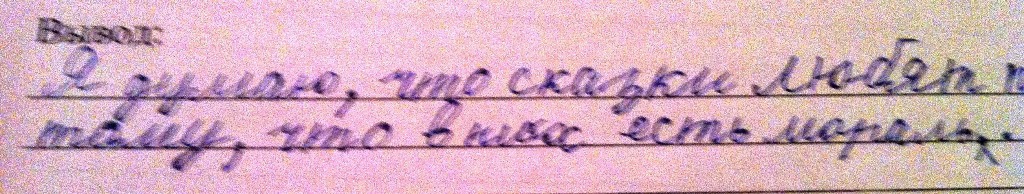 Вывод:
Я думаю, что сказки любят п
тому, что в них есть мораль,